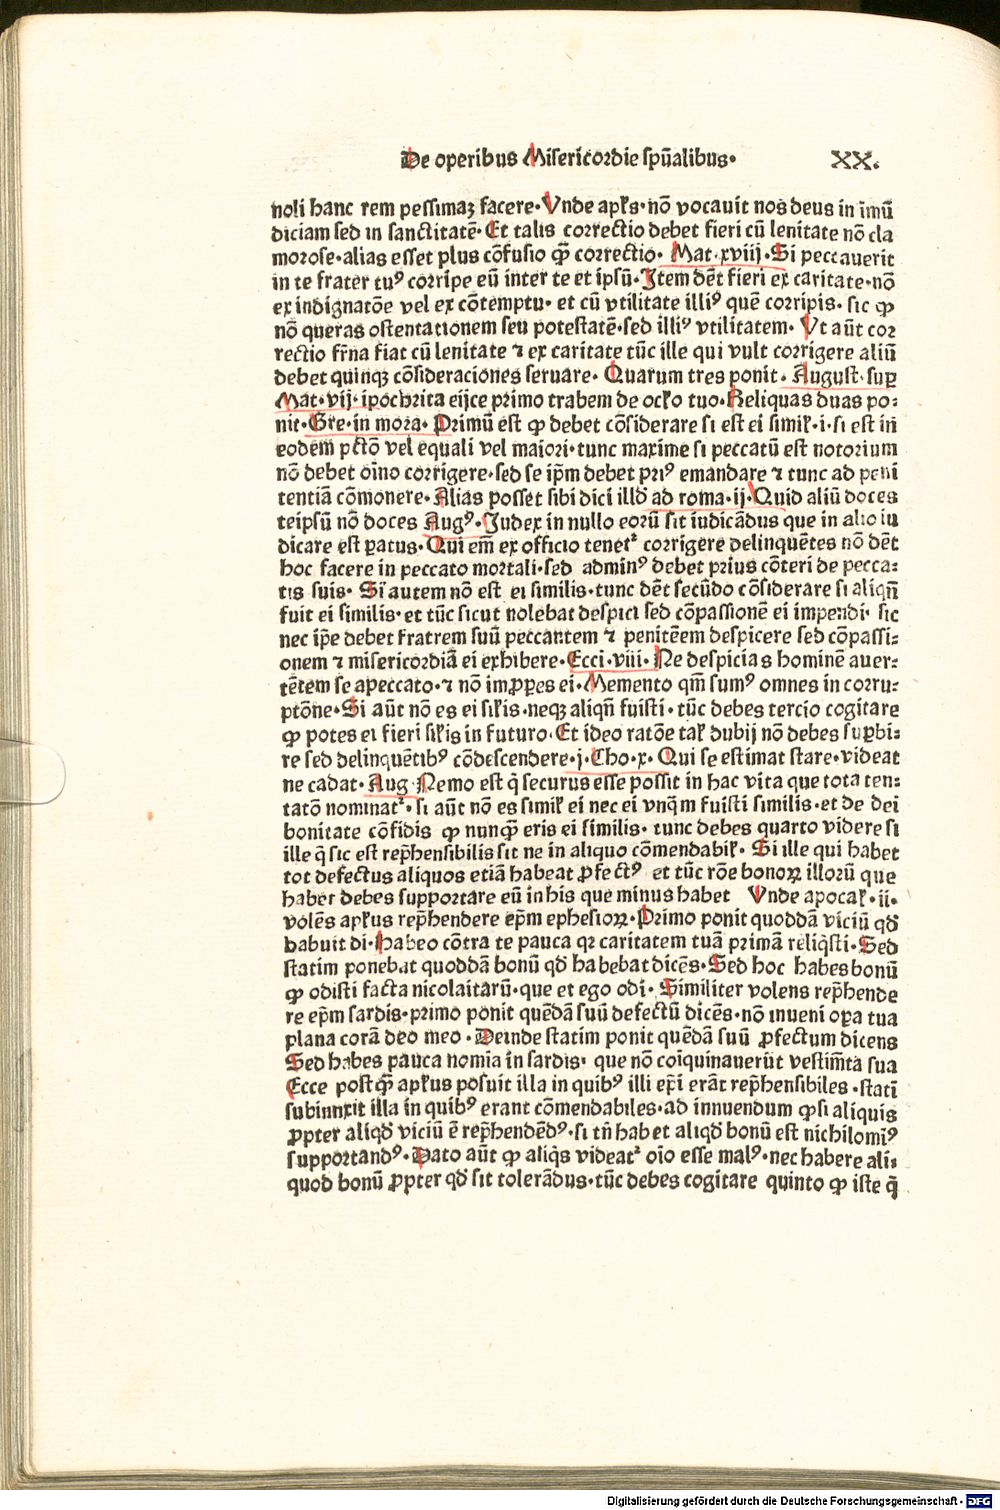 De operibus Misericordie spũalibus·
XX.
noli hanc rem pessimaꝫ facere·Vnde apłs·nõ vocauit nos deus in imũ
diciam sed in sanctitatẽ·Et talis correctio debet fieri cũ lenitate nõ cla
morose·alias esset plus cõfusio ꝙ̃ correctio·Mat·xviij·Si peccauerit
in te frater tuꝰ corripe eũ inter te et ipsũ·Jtem dẽt fieri ex caritate·nõ
ex indignatõe vel ex cõtemptu· et cũ vtilitate illiꝰ quẽ corripis· sic ꝙ
nõ queras ostentationem seu potestatẽ·sed illiꝰ vtilitatem· Vt aũt cor
rectio fr̃na fiat cũ lenitate ⁊ ex caritate tũc ille qui vult corrigere aliũ
debet quinqꝫ cõsideraciones seruare· Quarum tres ponit· August·suꝑ
Mat·vij·ipochrita eijce primo trabem de oclo tuo·Reliquas duas po⸗
nit·Gre·in mora· Primũ est ꝙ debet cõsiderare si est ei simił·i·si est in
eodem pctõ vel equali vel maiori·tunc maxime si peccatũ est notorium
nõ debet oĩno corrigere·sed se ip̃m debet priꝰ emandare ⁊ tunc ad peni
tentiã cõmonere·Alias posset sibi dici illđ ad roma·ij·Quid aliũ doces
teipsũ nõ doces Augꝰ·Judex in nullo eorũ sit iudicãdus que in alio iu
dicare est ꝑatus·Qui em̃ ex officio teneť corrigere delinquẽtes nõ dẽt
hoc facere in peccato mortali·sed adminꝰ debet prius cõteri de pecca⸗
tis suis· Si autem nõ est ei similis·tunc dẽt secũdo cõsiderare si aliqñ
fuit ei similis·et tũc sicut nolebat despici sed cõpassionẽ ei impendi· sic
nec ip̃e debet fratrem suũ peccantem ⁊ penitẽem despicere sed cõpassi⸗
onem ⁊ misericordiã ei exhibere·Ecci·viii·Ne despicias hominẽ auer⸗
tẽtem se apeccato·⁊ nõ imꝓꝑes ei·Memento qm̃ sumꝰ omnes in corru⸗
ptõne·Si aũt nõ es ei siłis·neqꝫ aliqñ fuisti·tũc debes tercio cogitare
ꝙ potes ei fieri siłis in futuro·Et ideo ratõe tał dubij nõ debes suꝑbi⸗
re sed delinquẽtibꝰ cõdescendere·j·Cho·x·Qui se estimat stare·videat
ne cadat·Aug·Nemo est q̃ securus esse possit in hac vita que tota ten⸗
tatõ nominať·si aũt nõ es simił ei nec ei vnq̃m fuisti similis·et de dei
bonitate cõfidis ꝙ nunꝙ̃ eris ei similis· tunc debes quarto videre si
ille q̃ sic est rep̃hensibilis sit ne in aliquo cõmendabił· Si ille qui habet
tot defectus aliquos etiã habeat ꝓfectꝰ et tũc rõe bonoꝝ illorũ que
habet debes supportare eũ in his que minus habet Vnde apocał·ii·
volẽs apłus rep̃hendere ep̃m ephesioꝝ·Primo ponit quoddã viciũ qđ
habuit di·Habeo cõtra te pauca qꝛ caritatem tuã primã reliq̃sti·Sed
statim ponebat quoddã bonũ qđ habebat dicẽs·Sed hoc habes bonũ
ꝙ odisti facta nicolaitarũ·que et ego odi·Similiter volens rep̃hende
re ep̃m sardis·primo ponit quẽdã suũ defectũ dicẽs·nõ inueni oꝑa tua
plana corã deo meo·Deinde statim ponit quẽdã suũ ꝓfectum dicens
Sed habes pauca nomĩa in sardis· que nõ coĩquinauerũt vestim̃ta sua
Ecce postꝙ̃ apłus posuit illa in quibꝰ illi ep̃i erãt rep̃hensibiles·statĩ
subiunxit illa in quibꝰ erant cõmendabiles·ad innuendum ꝙ si aliquis
ꝓpter aliqđ viciũ ẽ rep̃hendẽdꝰ·si tñ habet aliqđ bonũ est nichilomiꝰ
supportandꝰ·Dato aũt ꝙ aliq̃s videať oĩo esse malꝰ·nec habere ali⸗
quod bonũ ꝓpter qđ sit tolerãdus·tũc debes cogitare quinto ꝙ iste q̃
Digitalisierung gefördert durch die Deutsche Forschungsgemeinschaft - DFG